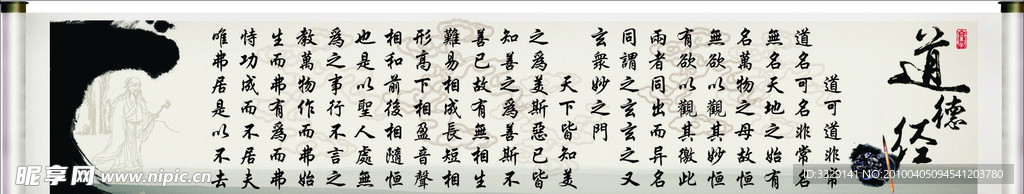 道德經
道可道非常
道名可名非常名
無名天地之始有
名萬物之母故恒
無欲以觀其妙恒
有欲以觀其徼此
兩者同出而異名
同謂之玄玄之又
玄眾妙之門
天下皆知美
之為美斯惡已皆
知善之為善斯不
善已故有無相生
難易相成長短相
形高下相盈音聲
相和前後相隨恒
也是以聖人處無
為之事行不言之
教萬物作而弗始
生而弗有為而弗
恃功成而不居夫
唯弗居是以不去
昵享网 www.nipic.cn
ID:3329141 NO:20100405094541203780